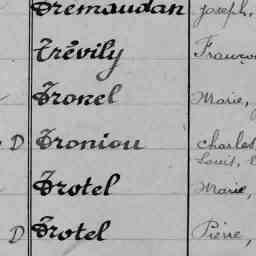 Trémaudan Joseph,
Trévily
Tronel Marie,
D Troniou Charles,
Louis,
Trotel Marie,
D Trotel Pierre,